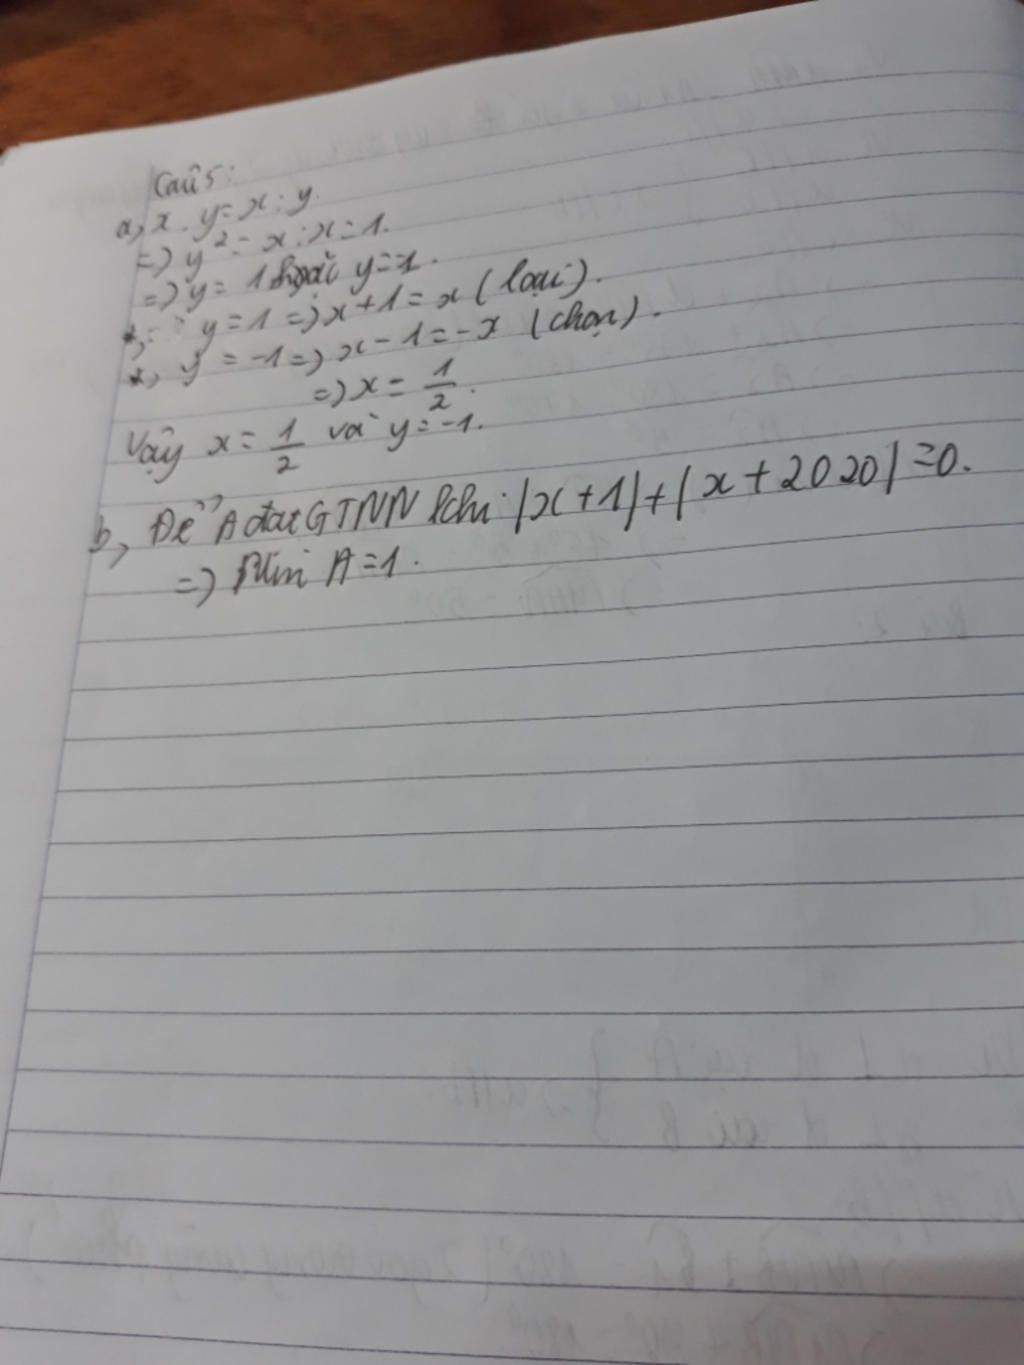 Câu 5:
a, x . y = x : y.
=> y² = x : x = 1.
=> y = 1 hoặc y = -1.
*, y = 1 => x + 1 = x (loại).
*, y = -1 => x - 1 = -x (chọn).
=> x = 1/2.
Vậy x = 1/2 và y = -1.
b, Để A đạt GTNN khi: |x + 1| + |x + 2020| = 0.
=> Min A = 1.